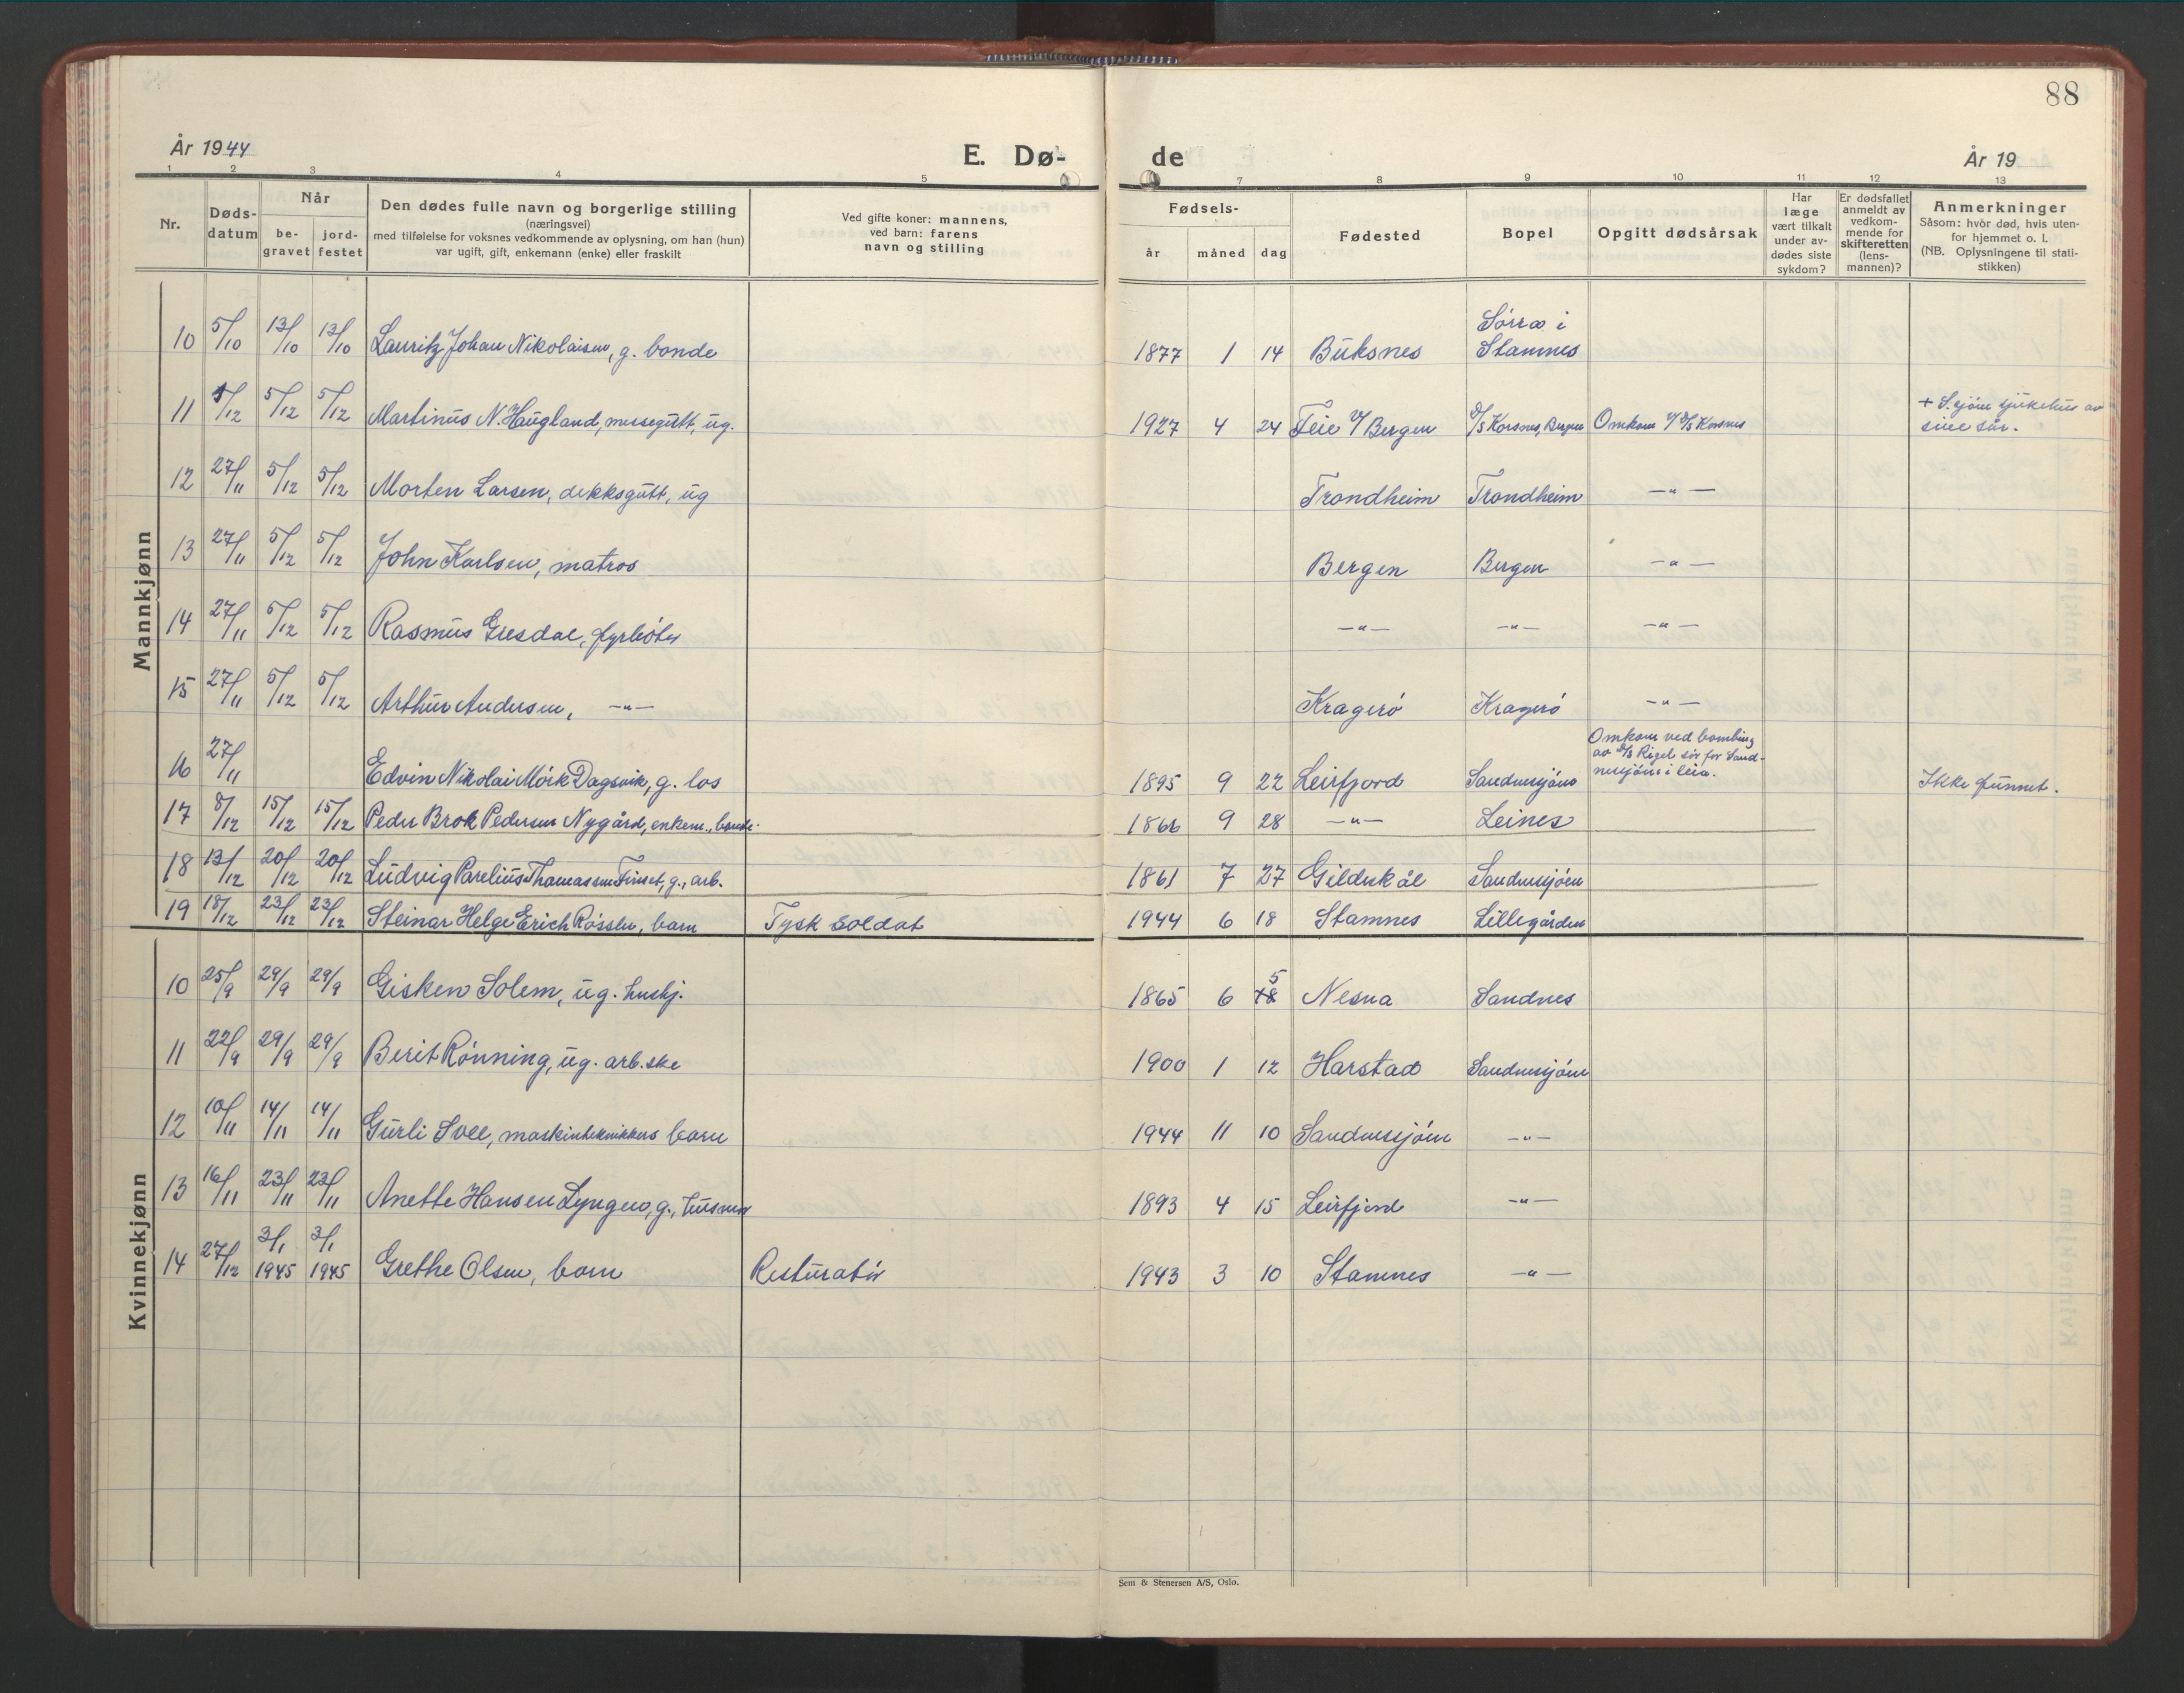 88
År 1944
E. Dø-
de
År 19
1 2 3 4 5 7 8 9 10 11 12 13
Nr.
Døds-
datum
Når
be-
gravet
jord-
festet
Den dødes fulle navn og borgerlige stilling
(næringsvei)
med tilføielse for voksnes vedkommende av oplysning, om han (hun)
var ugift, gift, enkemann (enke) eller fraskilt
Ved gifte koner: mannens,
ved barn: farens
navn og stilling
Fødsels-
år måned dag
Fødested
Bopel
Opgitt dødsårsak
Har
læge
vært tilkalt
under av-
dødes siste
sykdom?
Er dødsfallet
anmeldt av
vedkom-
mende for
skifteretten
(lens-
mannen)?
Anmerkninger
Såsom: hvor død, hvis uten-
for hjemmet o. l.
(NB. Oplysningene til stati-
stikken)
Mannkjønn
10 5/10 13/10 13/10 Lauritz Johan Nikolaisen, g. bonde 1877 1 14 Buksnes Sørra i
Stamnes
11 1/12 5/12 5/12 Martinus N. Haugland, messegutt, ug. 1927 4 24 Feie v/ Bergen D/S Korsnes, Bergen Omkom v/ D/S Korsnes + S.sjøen sjukehus av
sine sår.
12 27/11 5/12 5/12 Morten Larsen, dekksgutt, ug Trondheim Trondheim —"—
13 27/11 5/12 5/12 John Karlsen, matros Bergen Bergen —"—
14 27/11 5/12 5/12 Rasmus Gresdal, fyrbøter —"— —"— —"—
15 27/11 5/12 5/12 Arthur Andersen, —"— Kragerø Kragerø —"—
16 27/11 Edvin Nikolai Mörk Dagsvik, g. los 1895 9 22 Leirfjord Sandnessjøen Omkom ved bombing
av D/S Rigel sør for Sand-
nessjøen i leia. Ikke funnet.
17 8/12 15/12 15/12 Peder Brok Pedersen Nygård, enkem., bonde. 1866 9 28 —"— Leines
18 13/12 20/12 20/12 Ludvig Parelius Thomassen Finset, g., arb. 1861 7 27 Gildeskål Sandnessjøen
19 18/12 23/12 23/12 Steinar Helge Erich Rössler, barn Tysk soldat 1944 6 18 Stamnes Lillegården
Kvinnekjønn
10 25/9 29/9 29/9 Gisken Solem, ug. hushj. 1865 6 5 Nesna Sandnes
11 22/9 29/9 29/9 Berit Rønning, ug. arb.ske 1900 1 12 Harstad Sandnessjøen
12 10/11 14/11 14/11 Gurli Svee, maskinteknikers barn 1944 11 10 Sandnessjøen —"—
13 16/11 23/11 23/11 Anette Hansen Lyngen, g., husmor 1893 4 15 Leirfjord —"—
14 27/12 3/1 1945 3/1 1945 Grethe Olsen, barn Resturatör 1943 3 10 Stamnes —"—
Sem & Stenersen A/S, Oslo.